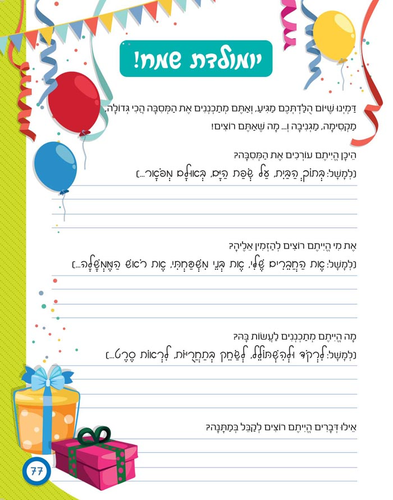 יומולדת שמח!
דַּמְיְנוּ שֶׁיּוֹם הֻלַּדְתְּכֶם מַגִּיעַ, וְאַתֶּם מְתַכְנְנִים אֶת הַמְּסִבָּה הֲכִי גְּדוֹלָה,
מַקְסִימָה, מַגְנִיבָה וְ... מָה שֶׁאַתֶּם רוֹצִים!
הֵיכָן הֱיִיתֶם עוֹרְכִים אֶת הַמְּסִבָּה?
(לְמָשָׁל: בְּתוֹךְ הַבַּיִת, עַל שְׂפַת הַיָּם, בְּאוּלָם מְפֹאָר...)
אֶת מִי הֱיִיתֶם רוֹצִים לְהַזְמִין אֵלֶיהָ?
(לְמָשָׁל: אֶת הַחֲבֵרִים שֶׁלִּי, אֶת בְּנֵי מִשְׁפַּחְתִּי, אֶת רֹאשׁ הַמֶּמְשָׁלָה...)
מָה הֱיִיתֶם מְתַכְנְנִים לַעֲשׂוֹת בָּהּ?
(לְמָשָׁל: לִרְקֹד וּלְהִשְׁתּוֹלֵל, לְשַׂחֵק בְּתַחֲרֻיּוֹת, לִרְאוֹת סֶרֶט...)
אֵילוּ דְּבָרִים הֱיִיתֶם רוֹצִים לְקַבֵּל בְּמַתָּנָה?
77